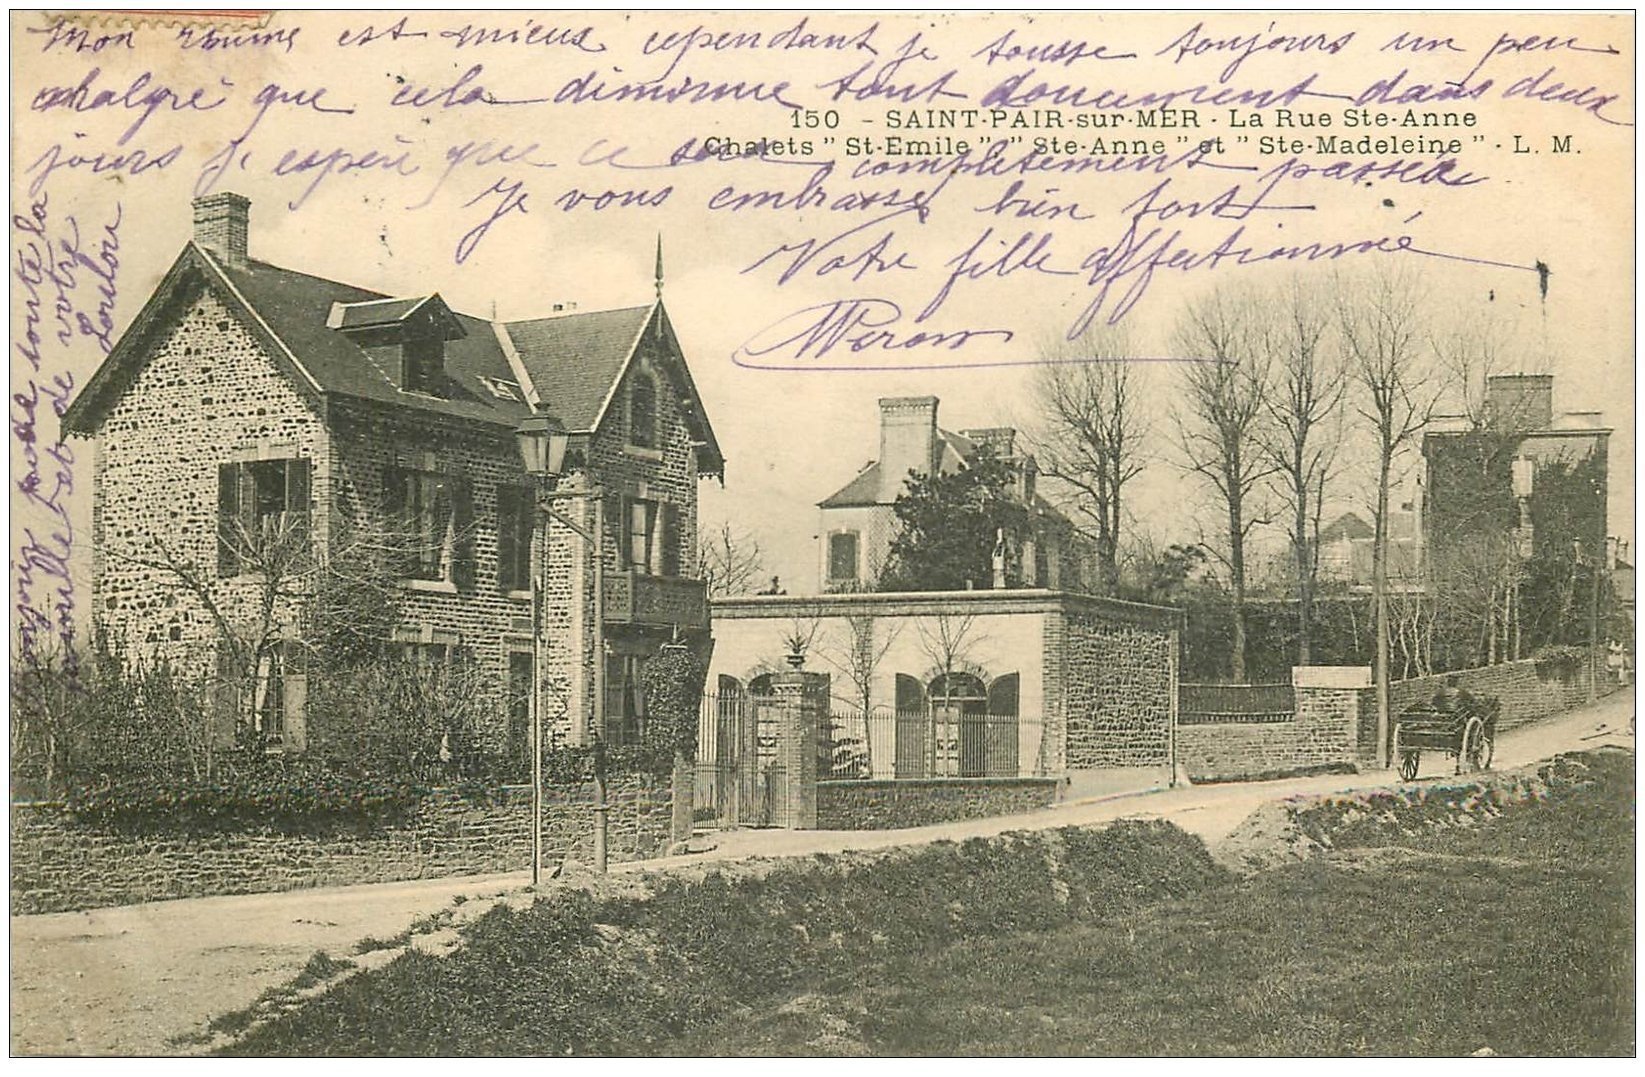 Mon rhume est mieux cependant je tousse toujours un peu
malgré que cela diminue tout doucement dans deux
150 - SAINT-PAIR-sur-MER - La Rue Ste-Anne
Chalets " St-Emile " " Ste-Anne " et " Ste-Madeleine " - L. M.
jours je espère que ce sera complètement passée
Je vous embrasse bien fort
Votre fille affectionnée
Bonjour pour toute la
et de votre
Loulou